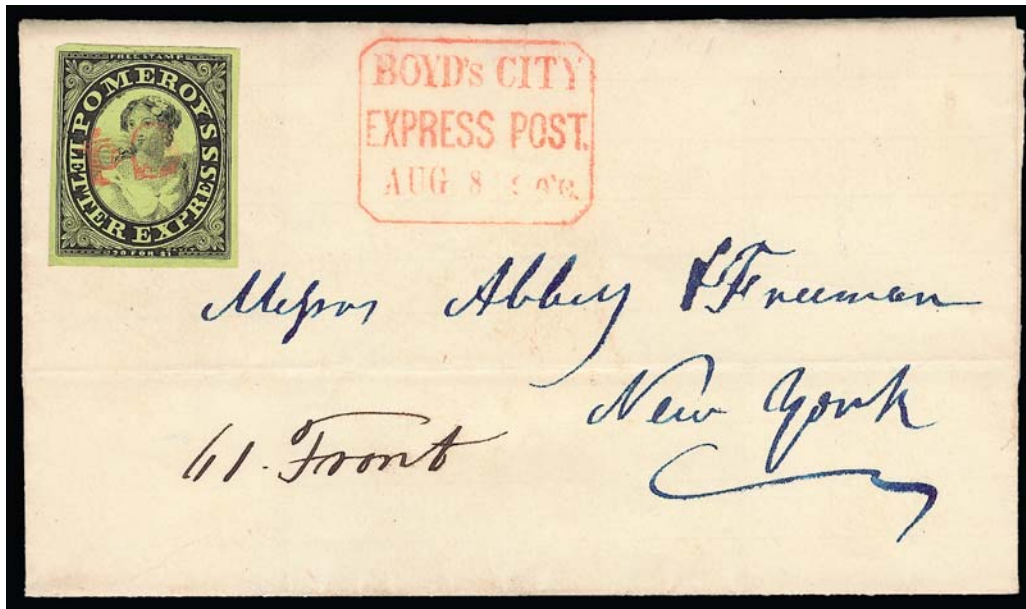 FREE STAMP
POMEROY'S LETTER EXPRESS
20 FOR $1
BOYD's CITY
EXPRESS POST.
AUG 8
Messrs Abbey & Freeman
New York
61. Front